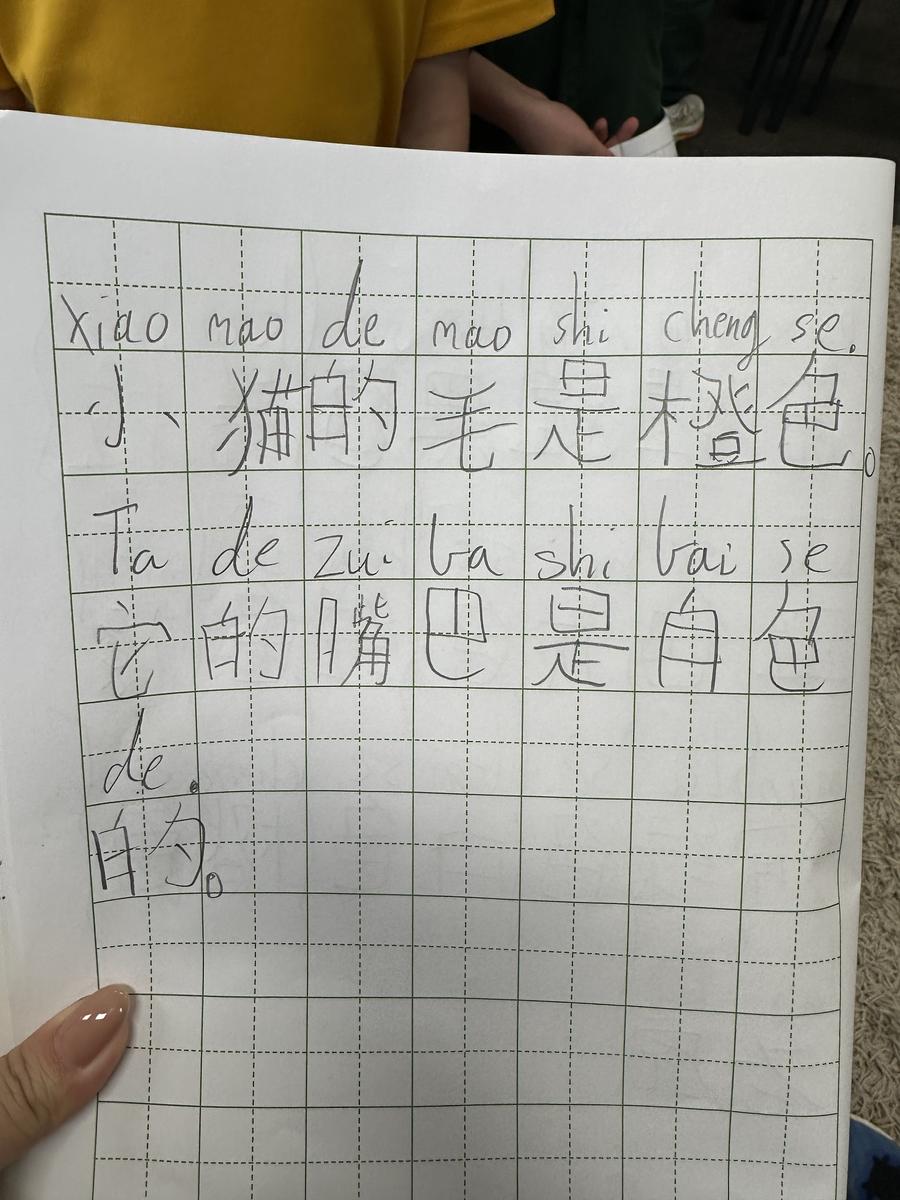 xiao mao de mao shi cheng se.
小猫的毛是橙色。
Ta de zui ba shi bai se
它的嘴巴是白色
de.
的。